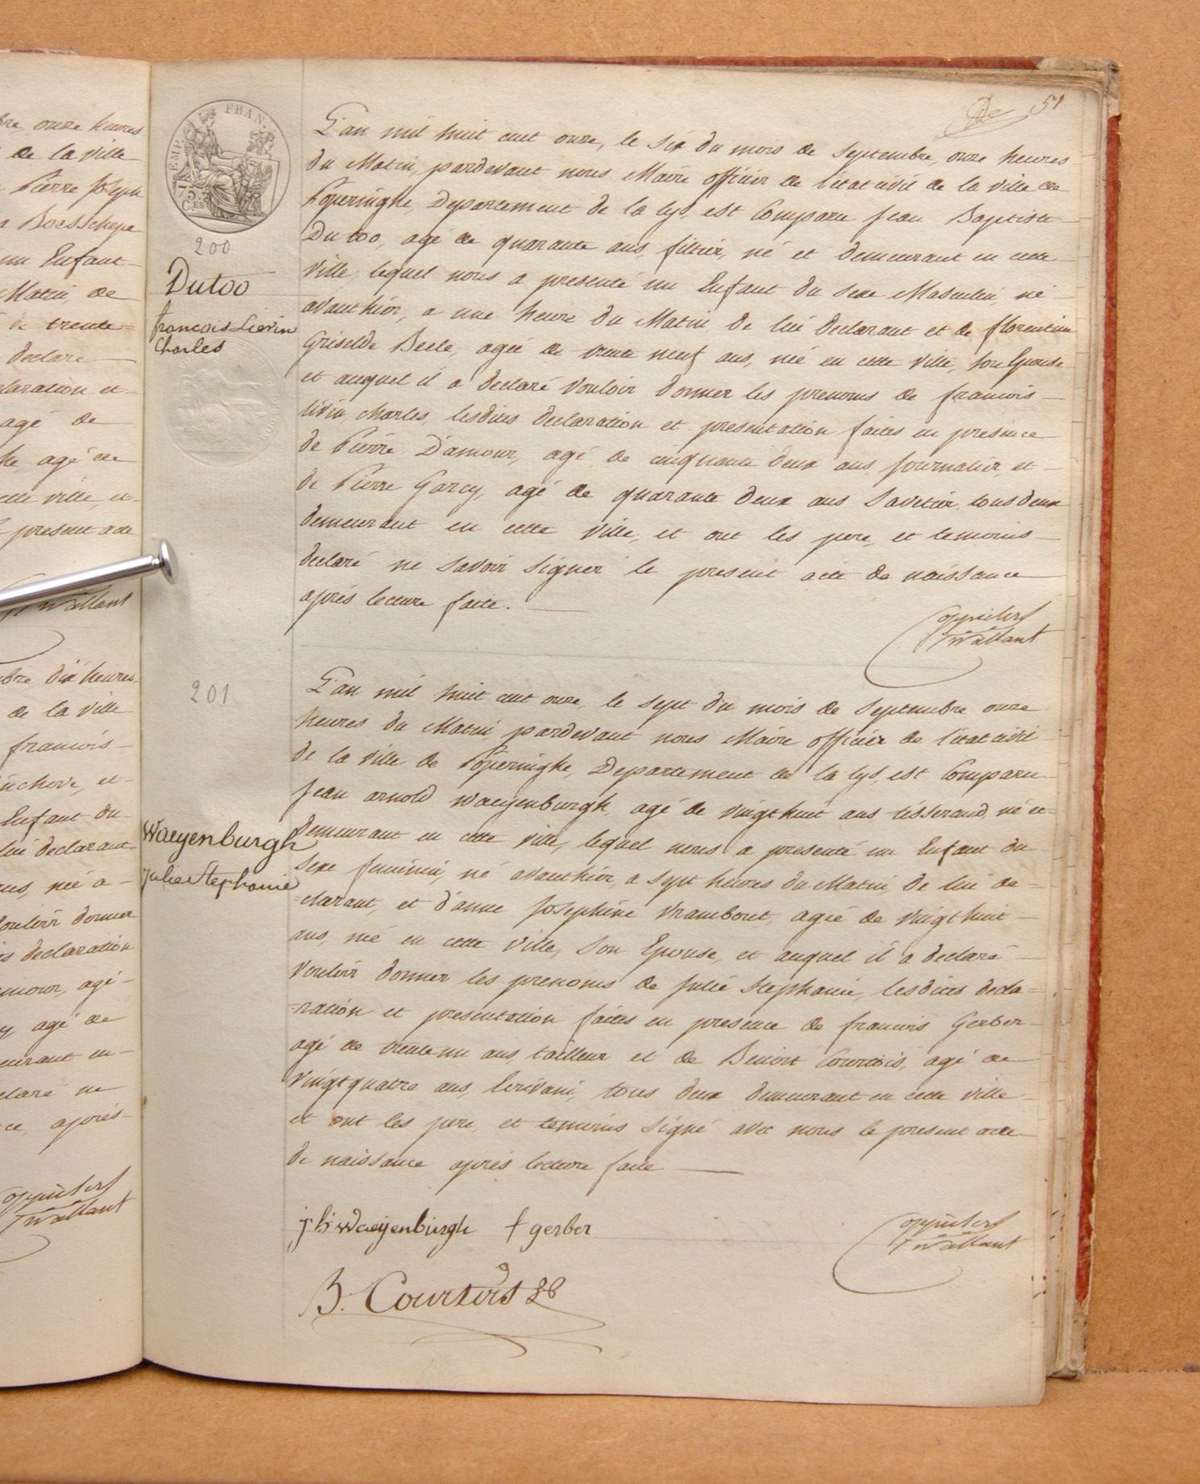 bre onze heures
de la ville
Pierre Joseph
Boesschepe
un Enfant
Matin, de
de trente
declaré
claration et
agé de
agé de
cette ville, et
present acte
Vallant
bre dix heures
de la ville
francois
inchove, et
Enfant du
lui declarant
ans, née a
vouloir donner
declaration
amour, agé
agé de
meurant en
claré ne
ce, aprés
Vallant
51
EMPIRE FRAN
200
Dutoo
francois Lievin
Charles
L'an mil huit cent onze, le six du mois de Septembre, onze heures
du Matin, pardevant nous Maire officier de l'etat civil de la ville de
Poperinghe, Departement de la Lys, est Comparu Jean Baptiste
Dutoo, agé de quarante ans, filtier, né et demeurant en cette
ville, lequel nous a presenté un Enfant du sexe Masculin, né
avanthier, a une heure du Matin, de lui declarant et de florentine
Griselde Beele, agée de trente neuf ans, née en cette ville, son Epouse
et auquel il a declaré vouloir donner les prenoms de francois
livin, charles, lesdites declaration et presentation faites en presence
de Pierre D'amour, agé de cinquante deux ans journalier, et
de Pierre Garcy, agé de quarante deux ans Savetier, tous deux
demeurant en cette ville, et ont les pere, et temoins
declaré ne savoir signer le present acte de naissance
aprés lecture faite.
Vallant
201
Waeyenburgh
julie Stephanie
L'an mil huit cent onze, le sept du mois de Septembre onze
heures du Matin pardevant nous Maire officier de l'etat civil
de la ville de Poperinghe, Departement de la Lys, est Comparu
Jean arnold Waeyenburgh, agé de vingthuit ans tisserand, né et
demeurant en cette ville, lequel nous a presenté un Enfant du
sexe feminin, né avanthier, a sept heures du Matin, de lui de-
-clarant, et d'anne Josephine Vrambout, agée de vingthuit
ans, née en cette ville, son Epouse, et auquel il a declaré
vouloir donner les prenoms de Julie Stephanie, lesdites decla-
-ration et presentation faites en presence de francois Gerber
agé de trente un ans tailleur et de Benoit Courtois, agé de
vingtquatre ans, Ecrivain, tous deux demeurant en cette ville
et ont les pere, et temoins signé avec nous le present acte
de naissance aprés lecture faite
Waeyenburgh f gerber
Vallant
B. Courtois